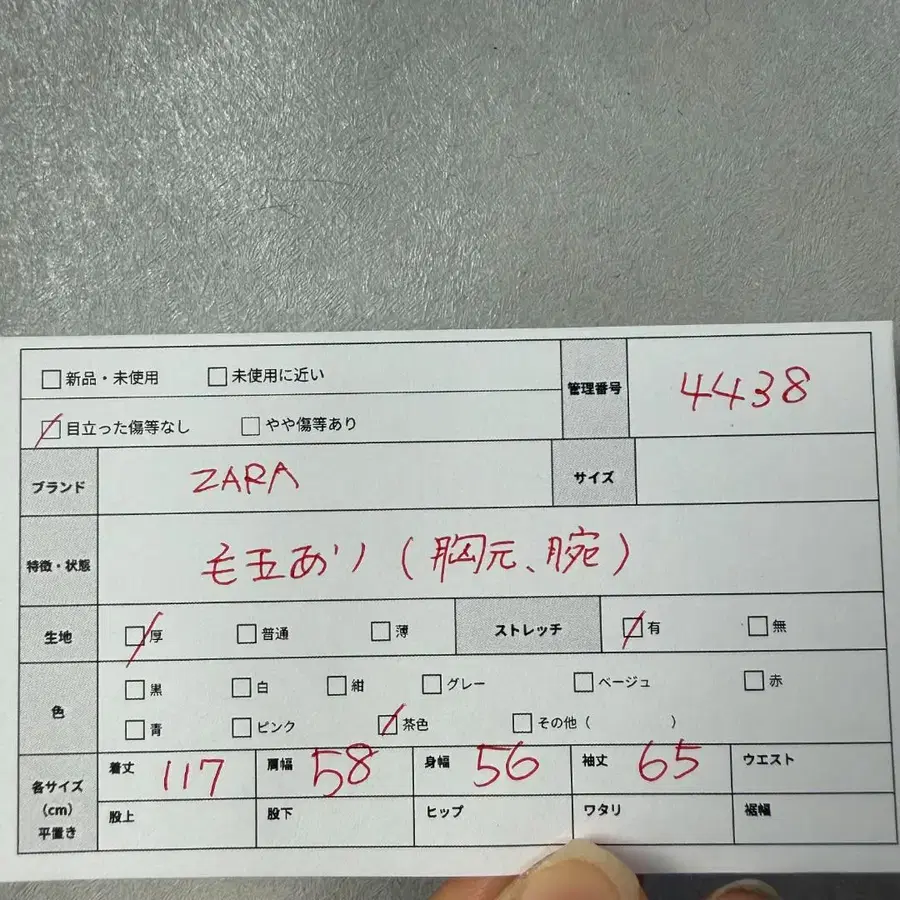 □新品・未使用 □未使用に近い
☑目立った傷等なし □やや傷等あり
管理番号 4438
ブランド ZARA サイズ
特徴・状態 毛玉あり(胸元、腕)
生地 ☑厚 □普通 □薄 ストレッチ ☑有 □無
色 □黒 □白 □紺 □グレー □ベージュ □赤
□青 □ピンク ☑茶色 □その他( )
各サイズ
(cm)
平置き
着丈 117 肩幅 58 身幅 56 袖丈 65 ウエスト
股上 股下 ヒップ ワタリ 裾幅